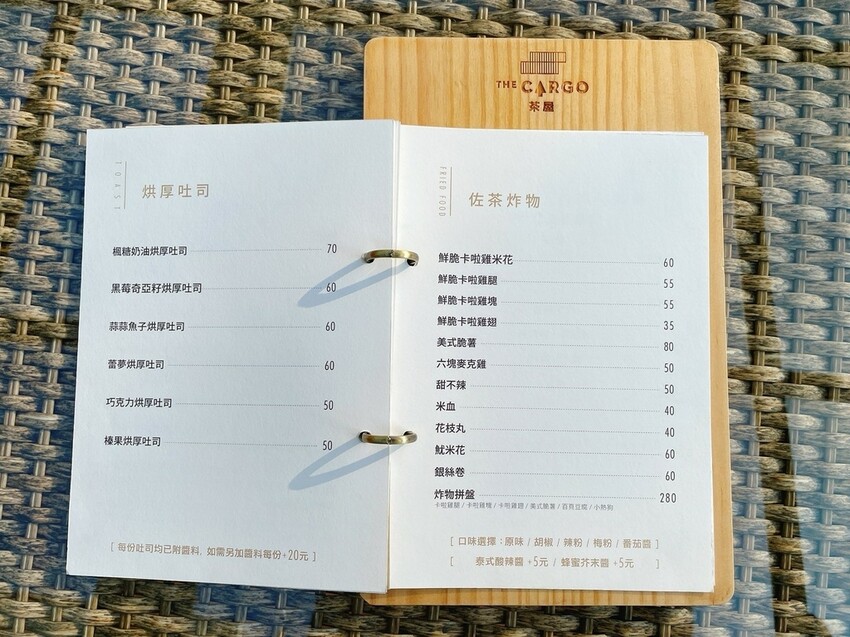 THE CARGO
茶屋
TOAST
烘厚吐司
楓糖奶油烘厚吐司 70
黑莓奇亞籽烘厚吐司 60
蒜蒜魚子烘厚吐司 60
蕾夢烘厚吐司 60
巧克力烘厚吐司 50
榛果烘厚吐司 50
[ 每份吐司均已附醬料, 如需另加醬料每份+20元 ]
FRIED FOOD
佐茶炸物
鮮脆卡啦雞米花 60
鮮脆卡啦雞腿 55
鮮脆卡啦雞塊 55
鮮脆卡啦雞翅 35
美式脆薯 80
六塊麥克雞 50
甜不辣 50
米血 40
花枝丸 40
魷米花 60
銀絲卷 60
炸物拼盤 280
卡啦雞腿 / 卡啦雞塊 / 卡啦雞翅 / 美式脆薯 / 百頁豆腐 / 小熱狗
[ 口味選擇：原味 / 胡椒 / 辣粉 / 梅粉 / 番茄醬 ]
[ 泰式酸辣醬 +5元 / 蜂蜜芥末醬 +5元 ]